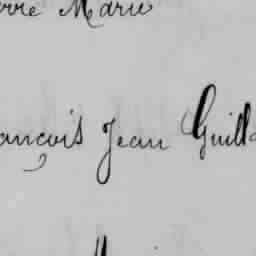 erre Marie
ançois Jean Guill